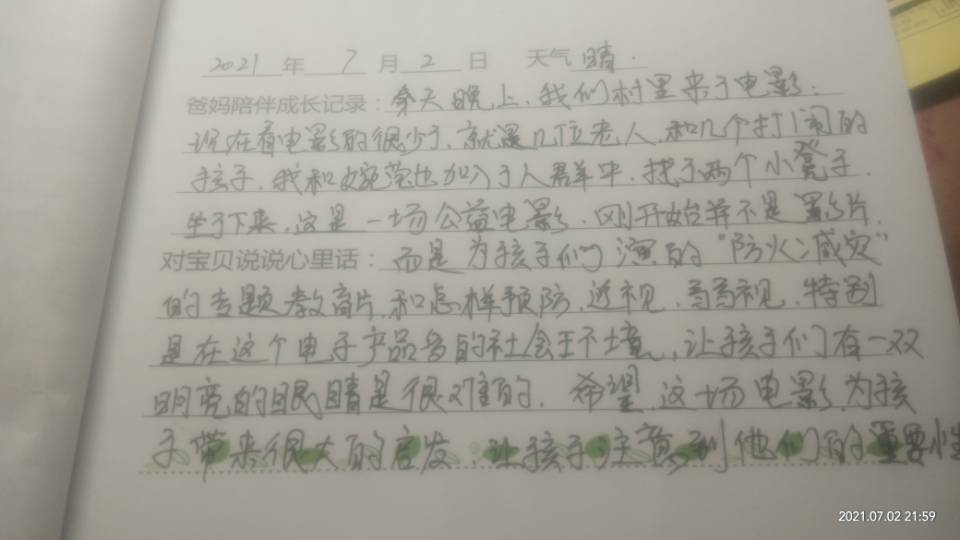 2021 年 7 月 2 日 天气 晴.
爸妈陪伴成长记录：今天晚上，我们村里来了电影，
现在看电影的很少了，就是几位老人，和几个打闹的
孩子，我和婉莹也加入了人群中，找了两个小凳子，
坐了下来，这是一场公益电影，刚开始并不是影片，
对宝贝说说心里话：而是为孩子们演的“防火减灾”
的专题教育片，和怎样预防，近视，弱视，特别
是在这个电子产品多的社会环境，让孩子们有一双
明亮的眼睛是很难的，希望，这场电影，为孩
子带来很大的启发，让孩子注意到他们的重要性
2021.07.02 21:59